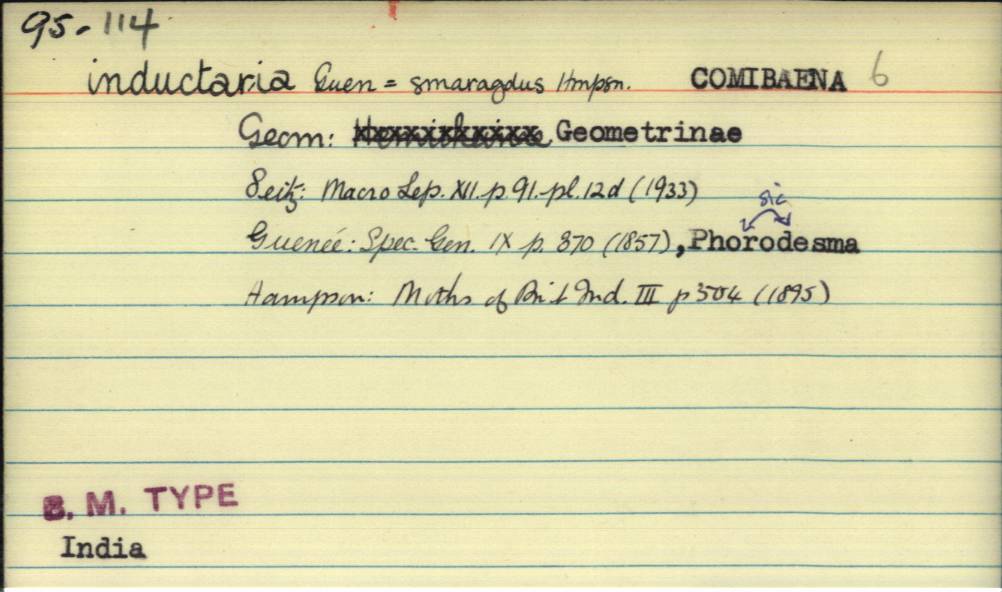 95-114
inductaria Guen = smaragdus Hmpsn. COMIBAENA 6
Geom: Geometrinae
Seitz: Macro Lep. XII. p. 91. pl. 12d (1933)
sic
Guenée: Spec. Gen. IX p. 370 (1857), Phorodesma
Hampson: Moths of Brit Ind. III p 504 (1895)
B. M. TYPE
India